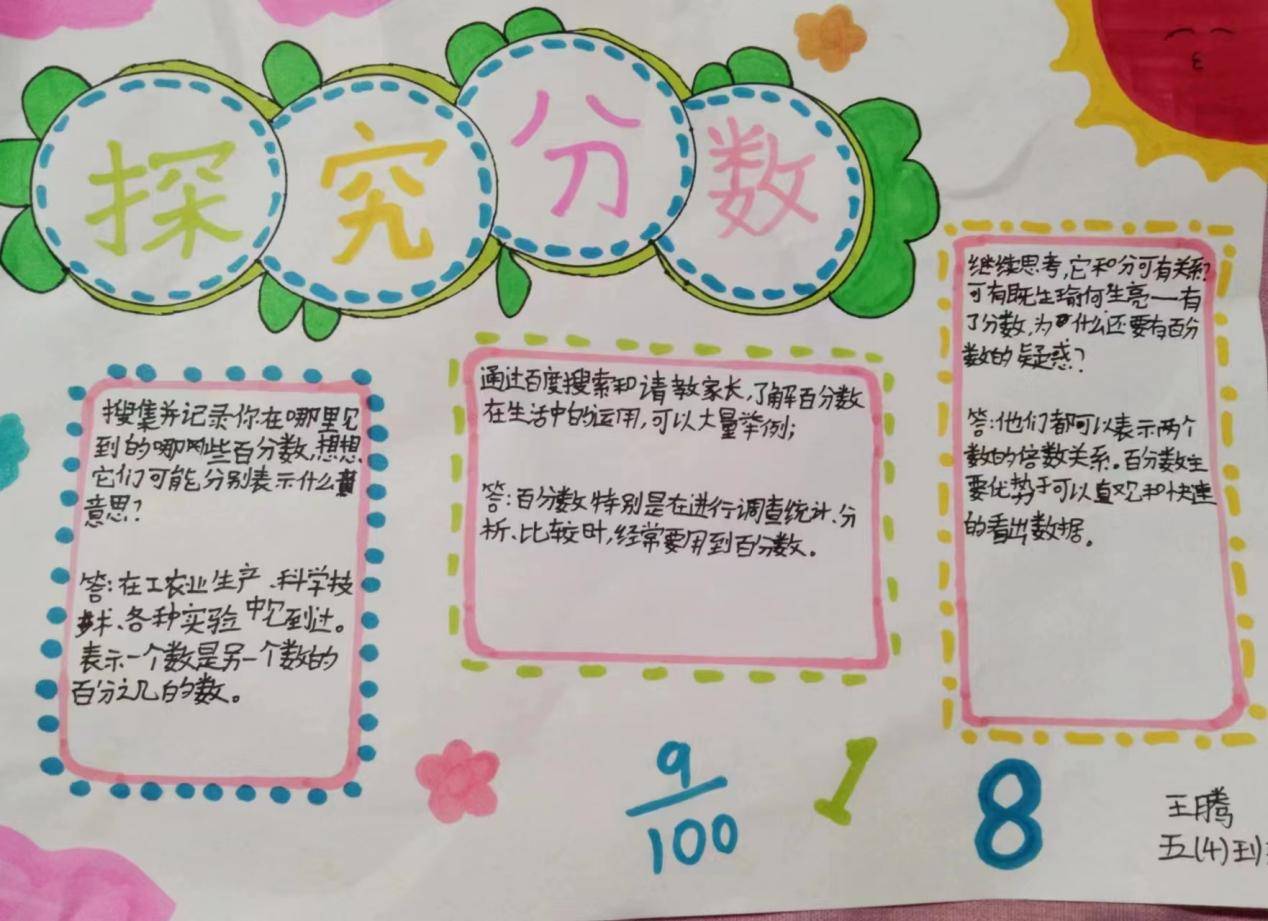 探究分数
搜集并记录你在哪里见
到的哪些百分数,想想
它们可能分别表示什么
意思?
答:在工农业生产、科学技
术、各种实验中见到过。
表示一个数是另一个数的
百分之几的数。
通过百度搜索和请教家长,了解百分数
在生活中的运用,可以大量举例;
答:百分数特别是在进行调查统计、分
析、比较时,经常要用到百分数。
继续思考,它和分可有关系?
可有既生瑜何生亮一有
了分数,为什么还要有百分
数的疑惑?
答:他们都可以表示两个
数的倍数关系。百分数主
要优势于可以直观和快速
的看出数据。
9
100
1
8
王腾
五(4)